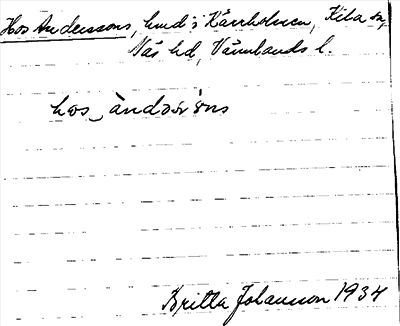 Hos Anderssons, hmd i Kärrholmen, Kila sn,
Näs hd, Värmlands l.
hos_ àndərs̀ns
Britta Johansson 1934